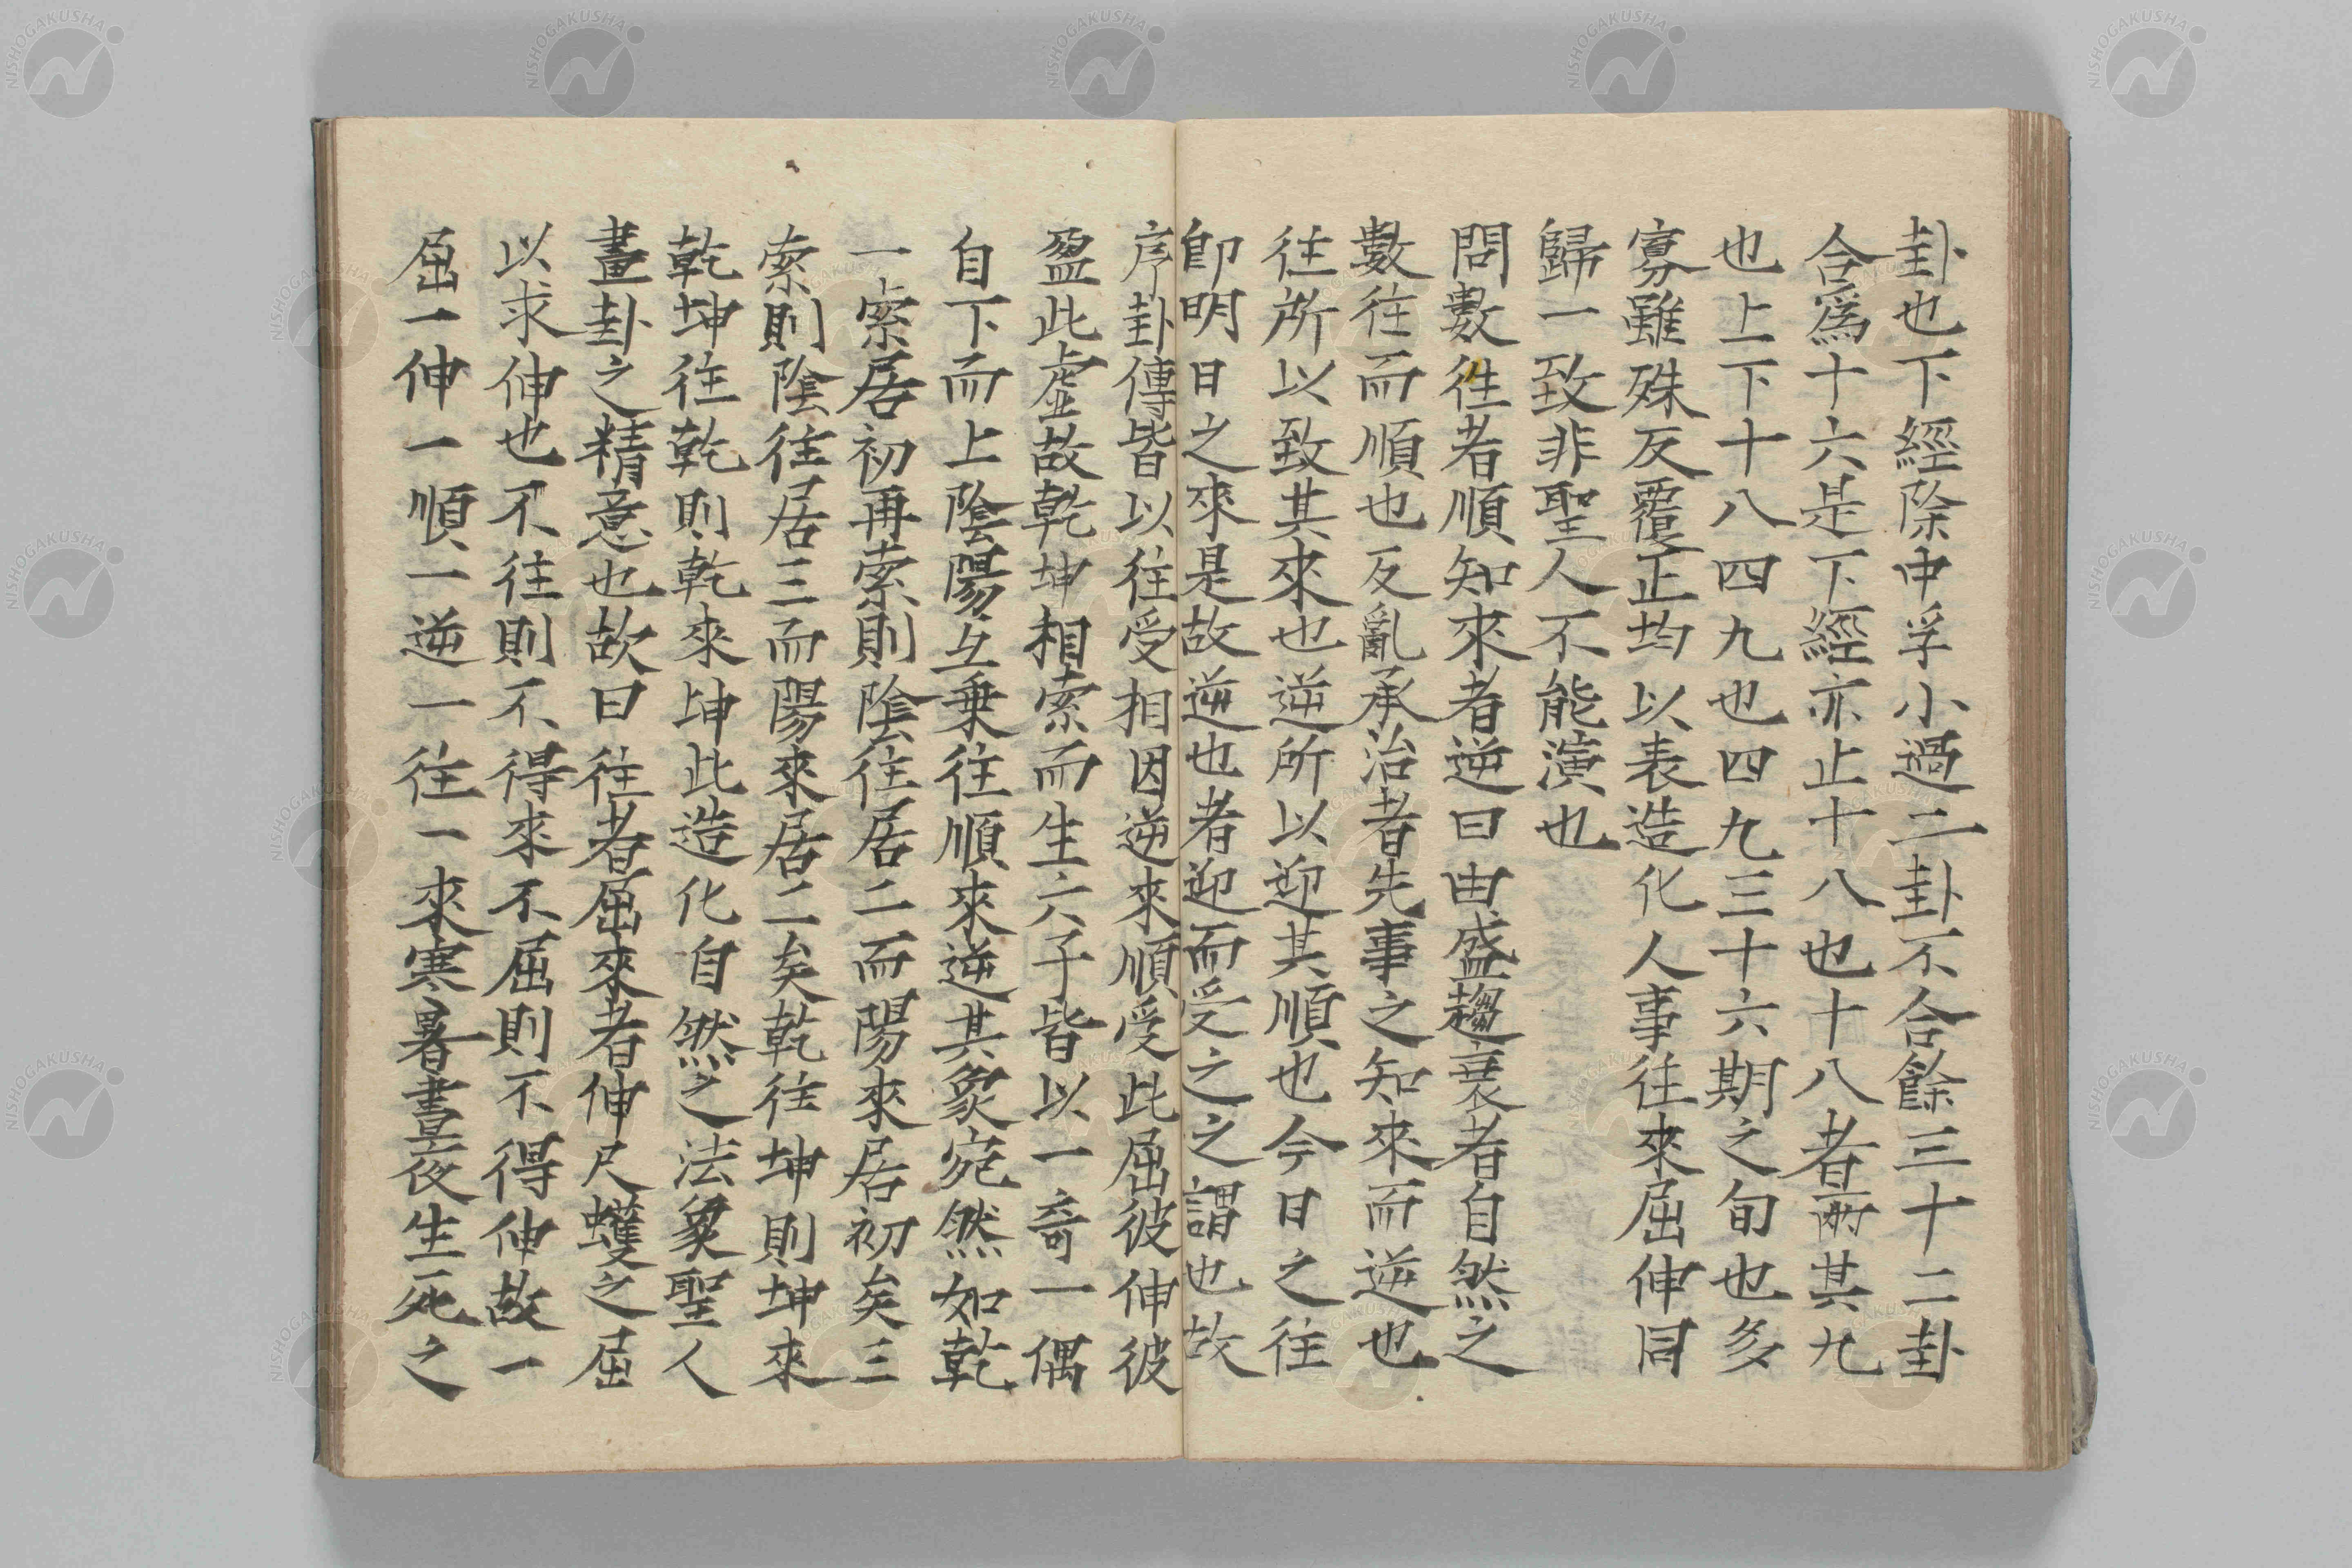 卦也下經除中孚小過二卦不合餘三十二卦
合爲十六是下經亦止十八也十八者兩其九
也上下十八四九也四九三十六期之旬也多
寡雖殊反覆正均以表造化人事往來屈伸同
歸一致非聖人不能演也
問數徃者順知來者逆曰由盛趨衰者自然之
數往而順也反亂承治者先事之知來而逆也
往所以致其來也逆所以迎其順也今日之往
卽明日之來是故逆也者迎而受之之謂也故
序卦傳皆以往受相因逆來順受此屈彼伸彼
盈此虛故乾坤相索而生六子皆以一奇一偶
自下而上陰陽互乗往順來逆其象宛然如乾
一索居初再索則陰往居二而陽來居初矣三
索則陰往居三而陽來居二矣乾往坤則坤來
乾坤往乾則乾來坤此造化自然之法象聖人
畫卦之精意也故曰往者屈來者伸尺蠖之屈
以求伸也不往則不得來不屈則不得伸故一
屈一伸一順一逆一往一來寒暑晝夜生死之
NISHOGAKUSHA